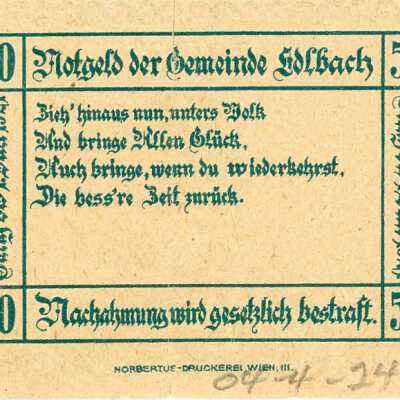 Notgeld der Gemeinde Edlbach
Zieh' hinaus nun, unters Volk
Und bringe Allen Glück,
Auch bringe, wenn du wiederkehrst,
Die bess're Zeit zurück.
Nachahmung wird gesetzlich bestraft.
NORBERTUS-DRUCKEREI WIEN, III.
04-4-24